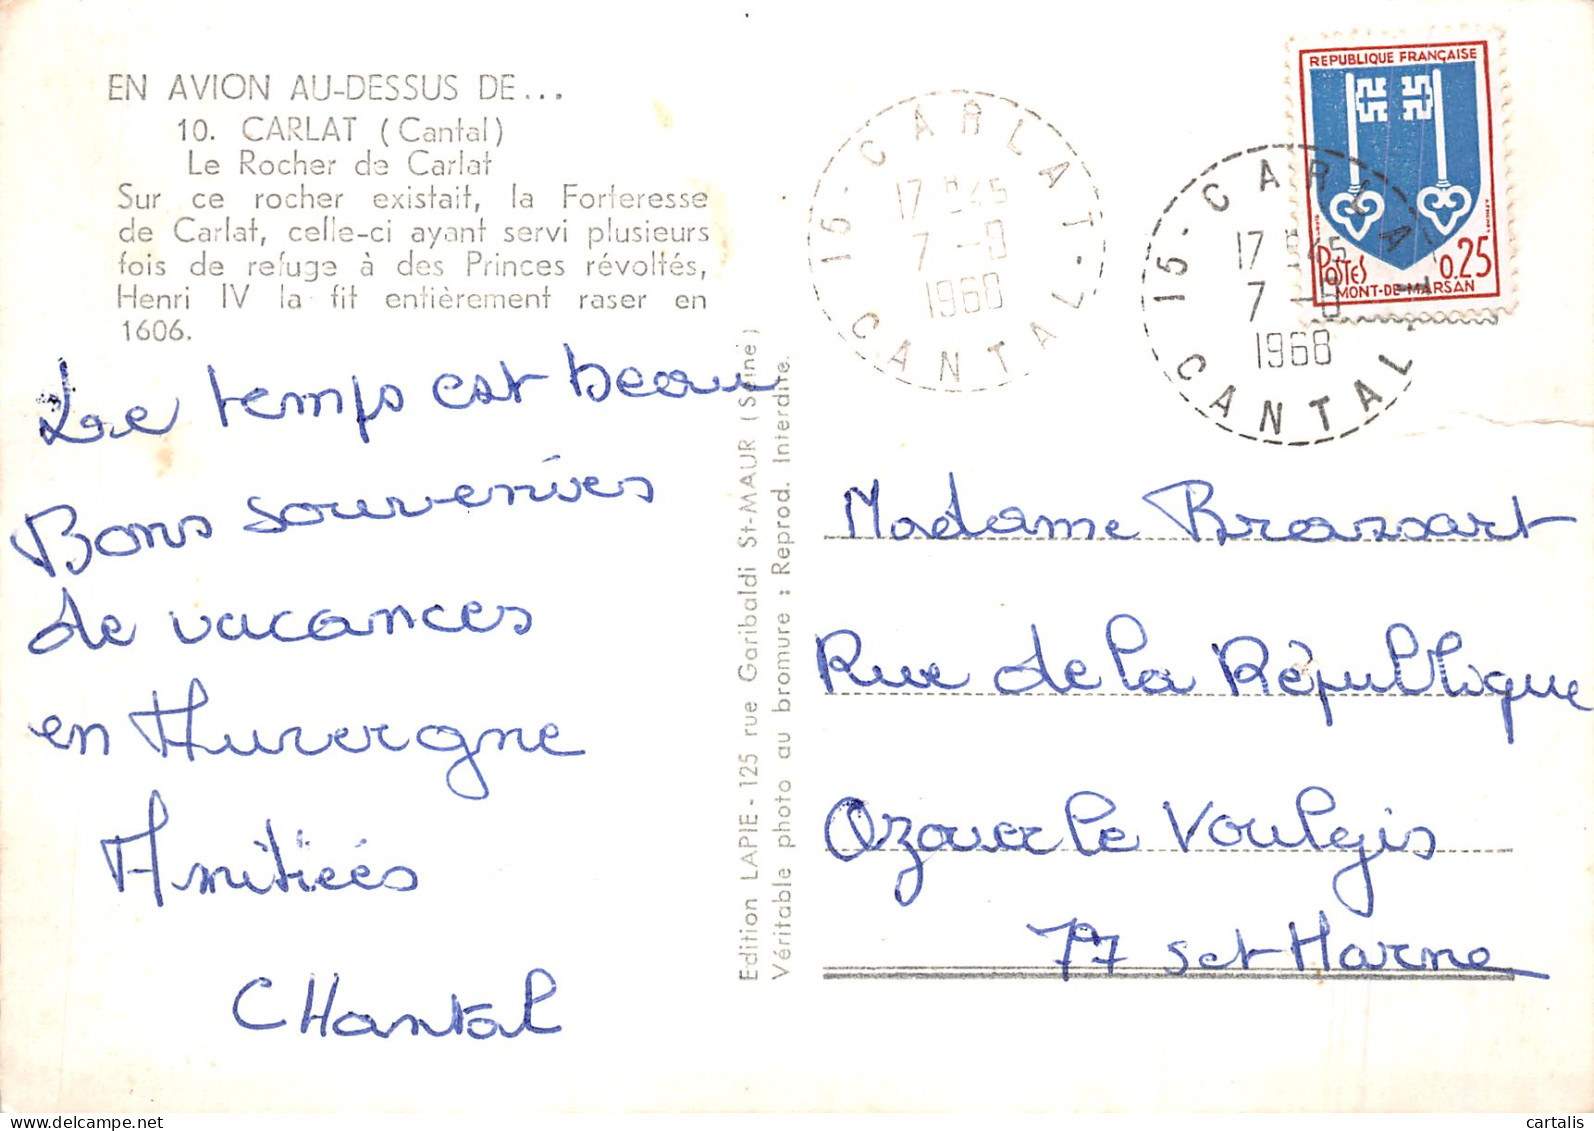 EN AVION AU-DESSUS DE...
10. CARLAT (Cantal)
Le Rocher de Carlat
Sur ce rocher existait, la Forteresse
de Carlat, celle-ci ayant servi plusieurs
fois de refuge à des Princes révoltés,
Henri IV la fit entièrement raser en
1606.
Le temps est beau
Bons souvenires
de vacances
en Auvergne
Amitiées
CHantal
Edition LAPIE - 125 rue Garibaldi St-MAUR (Seine)
Véritable photo au bromure : Reprod. Interdite.
15 - CARLAT - CANTAL
17 H45
7 -8
1968
15 - CARLAT - CANTAL
17 H45
7 -8
1968
REPUBLIQUE FRANÇAISE
POSTES
0,25
MONT-DE-MARSAN
Madame Brassart
Rue de la République
Ozouer le Voulgis
77 set Marne
cartalis